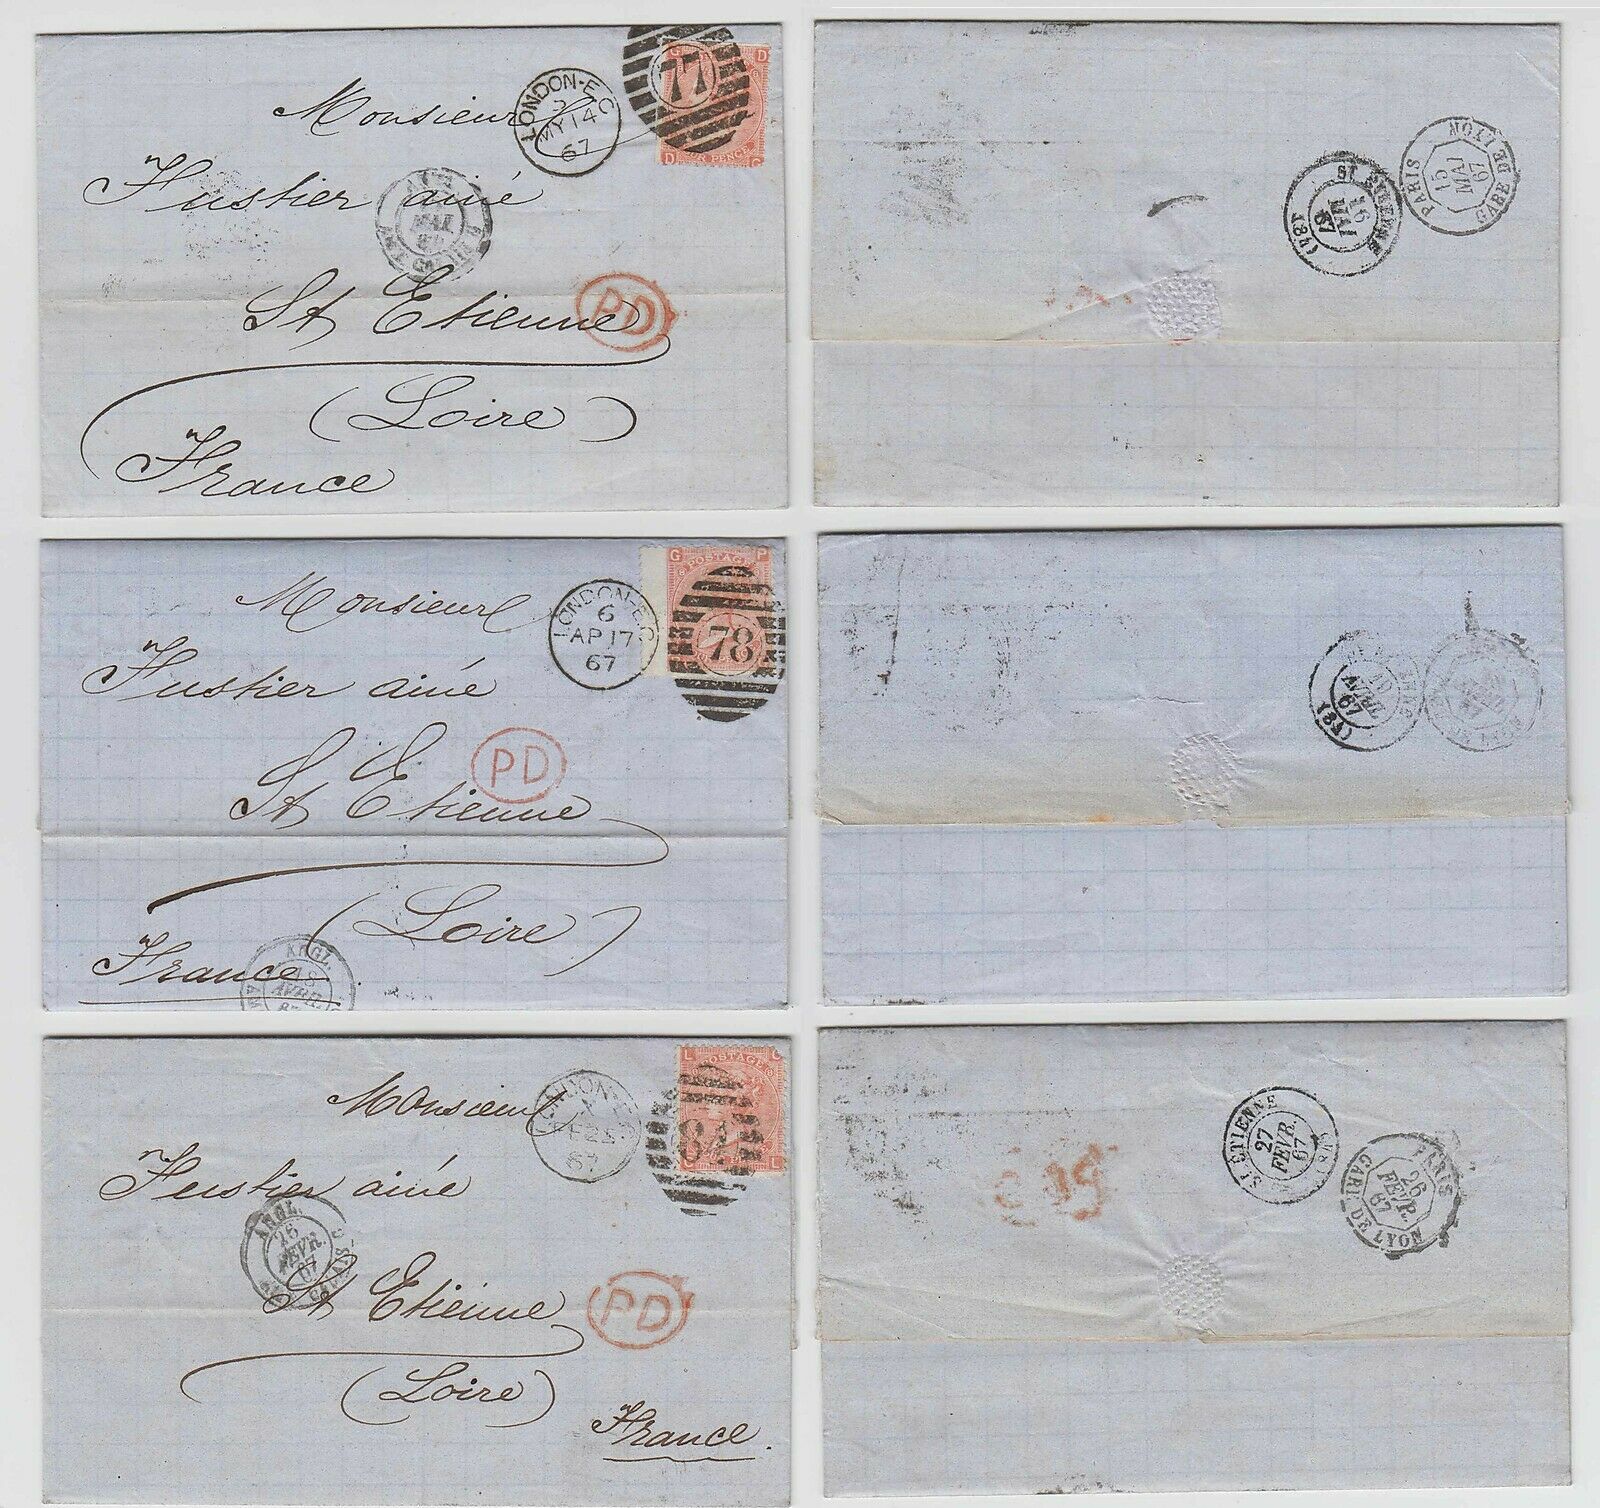 Monsieur
Fustier ainé
St Etienne
(Loire)
France
LONDON-E.C
MY 14
67
77
G D
FOUR PENCE
D G
MAI
PD
PARIS
15
MAI
67
GARE DE LYON
ST ETIENNE
16
MAI
67
(84)
Monsieur
Fustier ainé
St Etienne
(Loire)
France
LONDON-E.C
6
AP 17
67
G P
POSTAGE
78
PD
ANGL.
18
AVRIL
67
AVRIL
67
(84)
Monsieur
Fustier ainé
St Etienne
(Loire)
France
LONDON-E.C
X
FE 25
67
L C
POSTAGE
C L
ANGL.
26
FEVR.
67
CALAIS
PD
ST ETIENNE
27
FEVR.
67
PARIS
26
FEVR.
67
GARE DE LYON